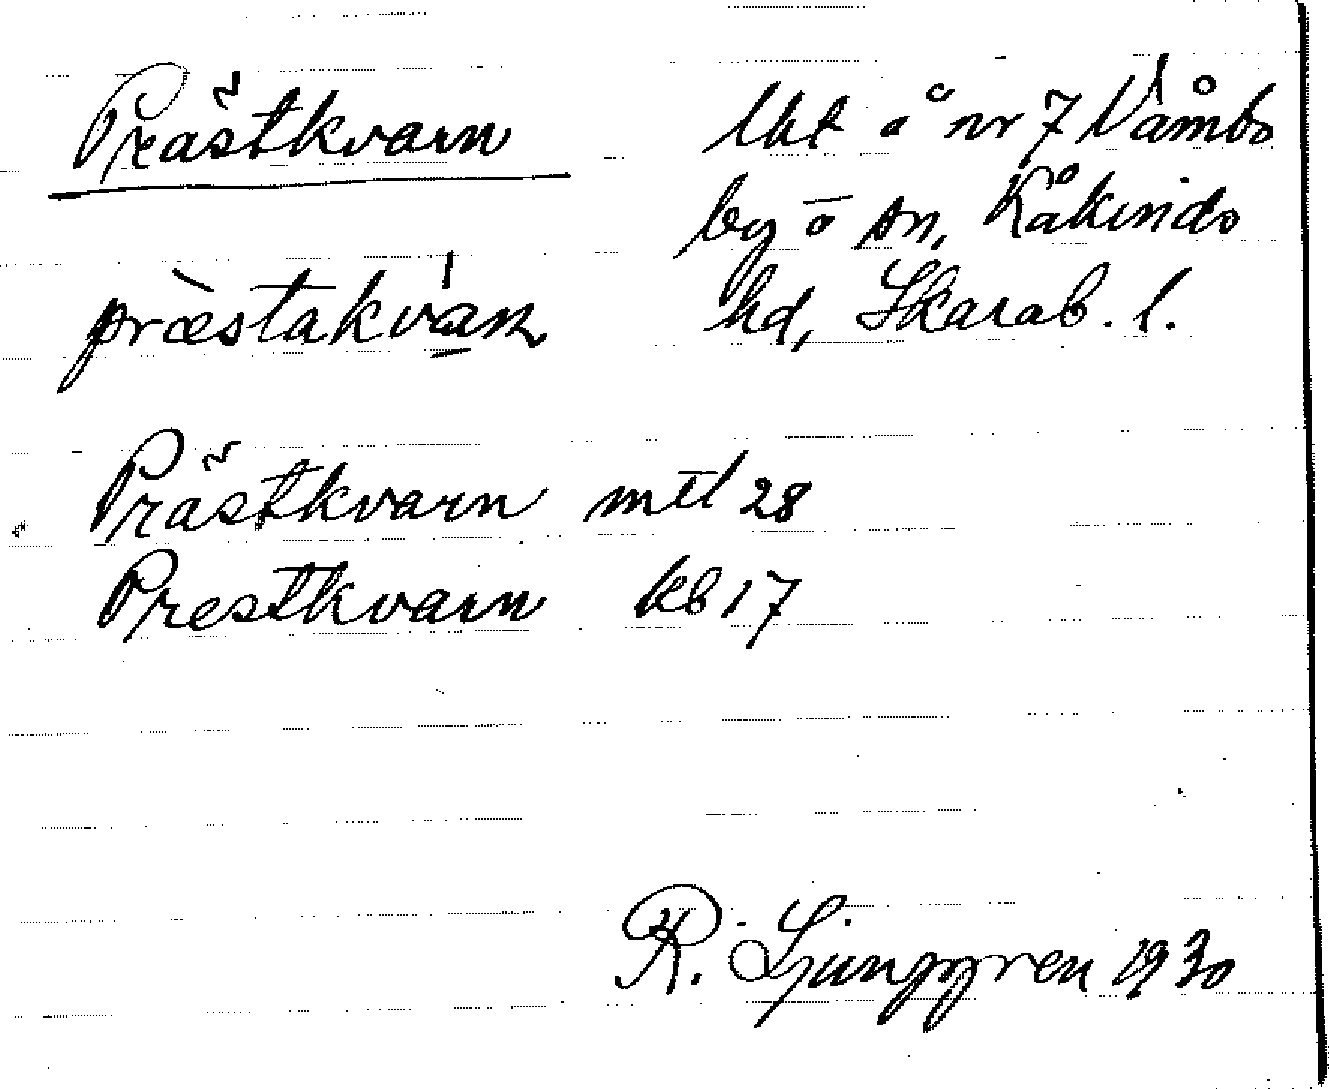 Prästkvarn
lht å nr 7 Våmbs
by o sn, Kåkinds
hd, Skarab. l.
præ̀stakván
Prästkvarn mtl 28
Prestkvarn kb 17
R. Ljunggren 1930